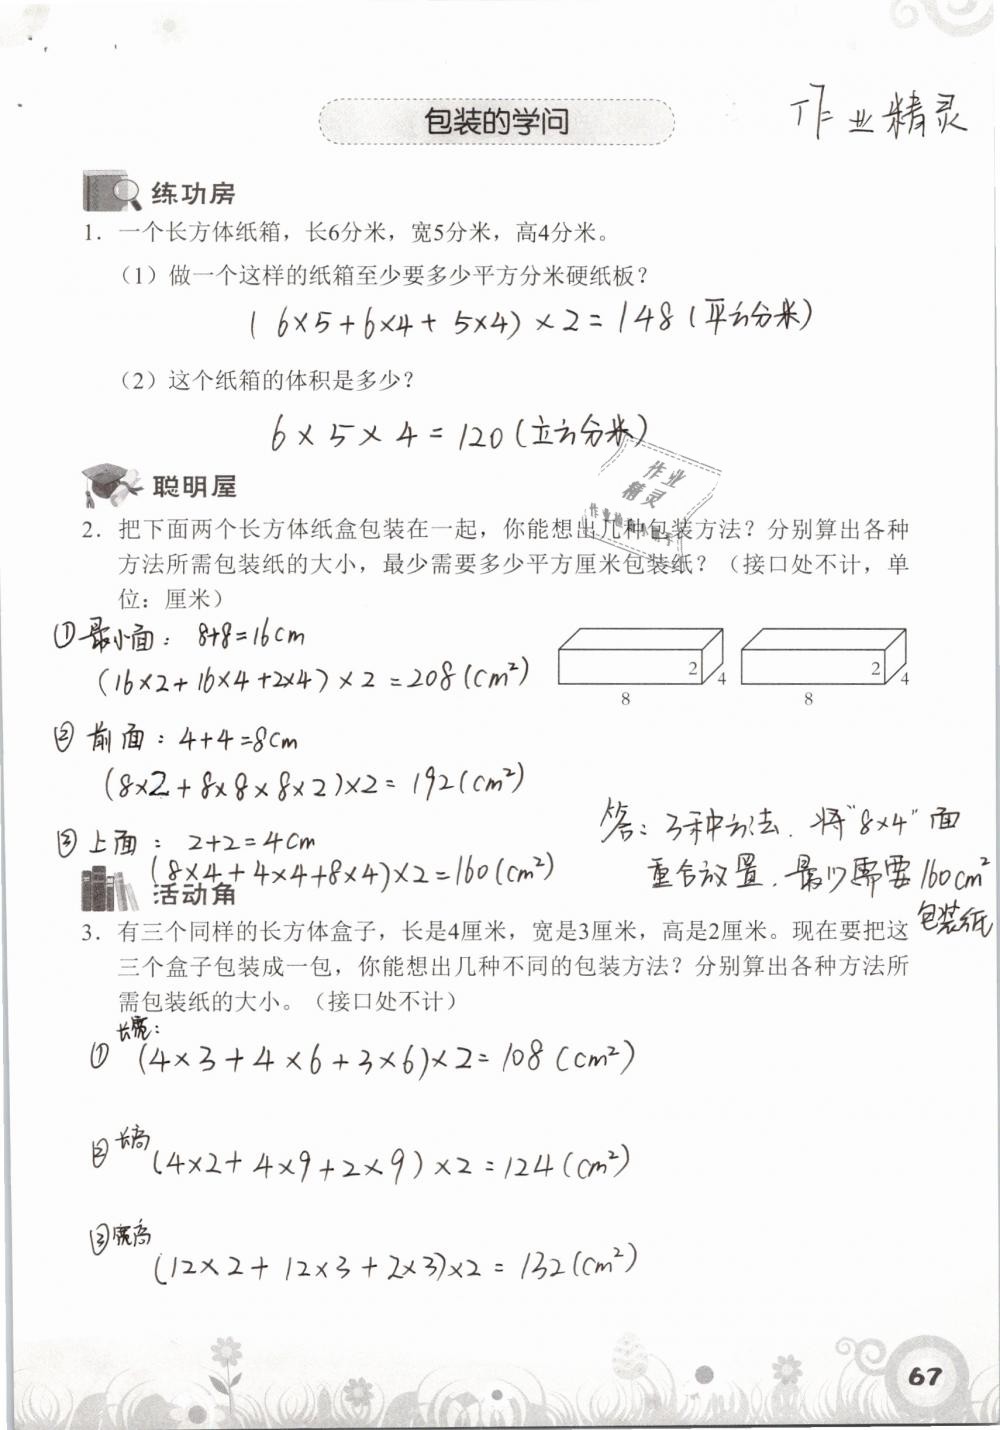 包装的学问
作业精灵
练功房
1．一个长方体纸箱，长6分米，宽5分米，高4分米。
（1）做一个这样的纸箱至少要多少平方分米硬纸板？
(6×5+6×4+5×4)×2=148(平方分米)
（2）这个纸箱的体积是多少？
6×5×4=120(立方分米)
聪明屋
作业
精灵
2．把下面两个长方体纸盒包装在一起，你能想出几种包装方法？分别算出各种
方法所需包装纸的大小，最少需要多少平方厘米包装纸？（接口处不计，单
位：厘米）
①最小面：8+8=16cm
(16×2+16×4+2×4)×2=208(cm²)
2 4 8
2 4 8
②前面：4+4=8cm
(8×2+8×8×8×2)×2=192(cm²)
③上面：2+2=4cm
(8×4+4×4+8×4)×2=160(cm²)
答：3种方法．将“8×4”面
重合放置．最少需要160cm²
包装纸
活动角
3．有三个同样的长方体盒子，长是4厘米，宽是3厘米，高是2厘米。现在要把这
三个盒子包装成一包，你能想出几种不同的包装方法？分别算出各种方法所
需包装纸的大小。（接口处不计）
长宽：
①(4×3+4×6+3×6)×2=108(cm²)
②长高
(4×2+4×9+2×9)×2=124(cm²)
③宽高
(12×2+12×3+2×3)×2=132(cm²)
67